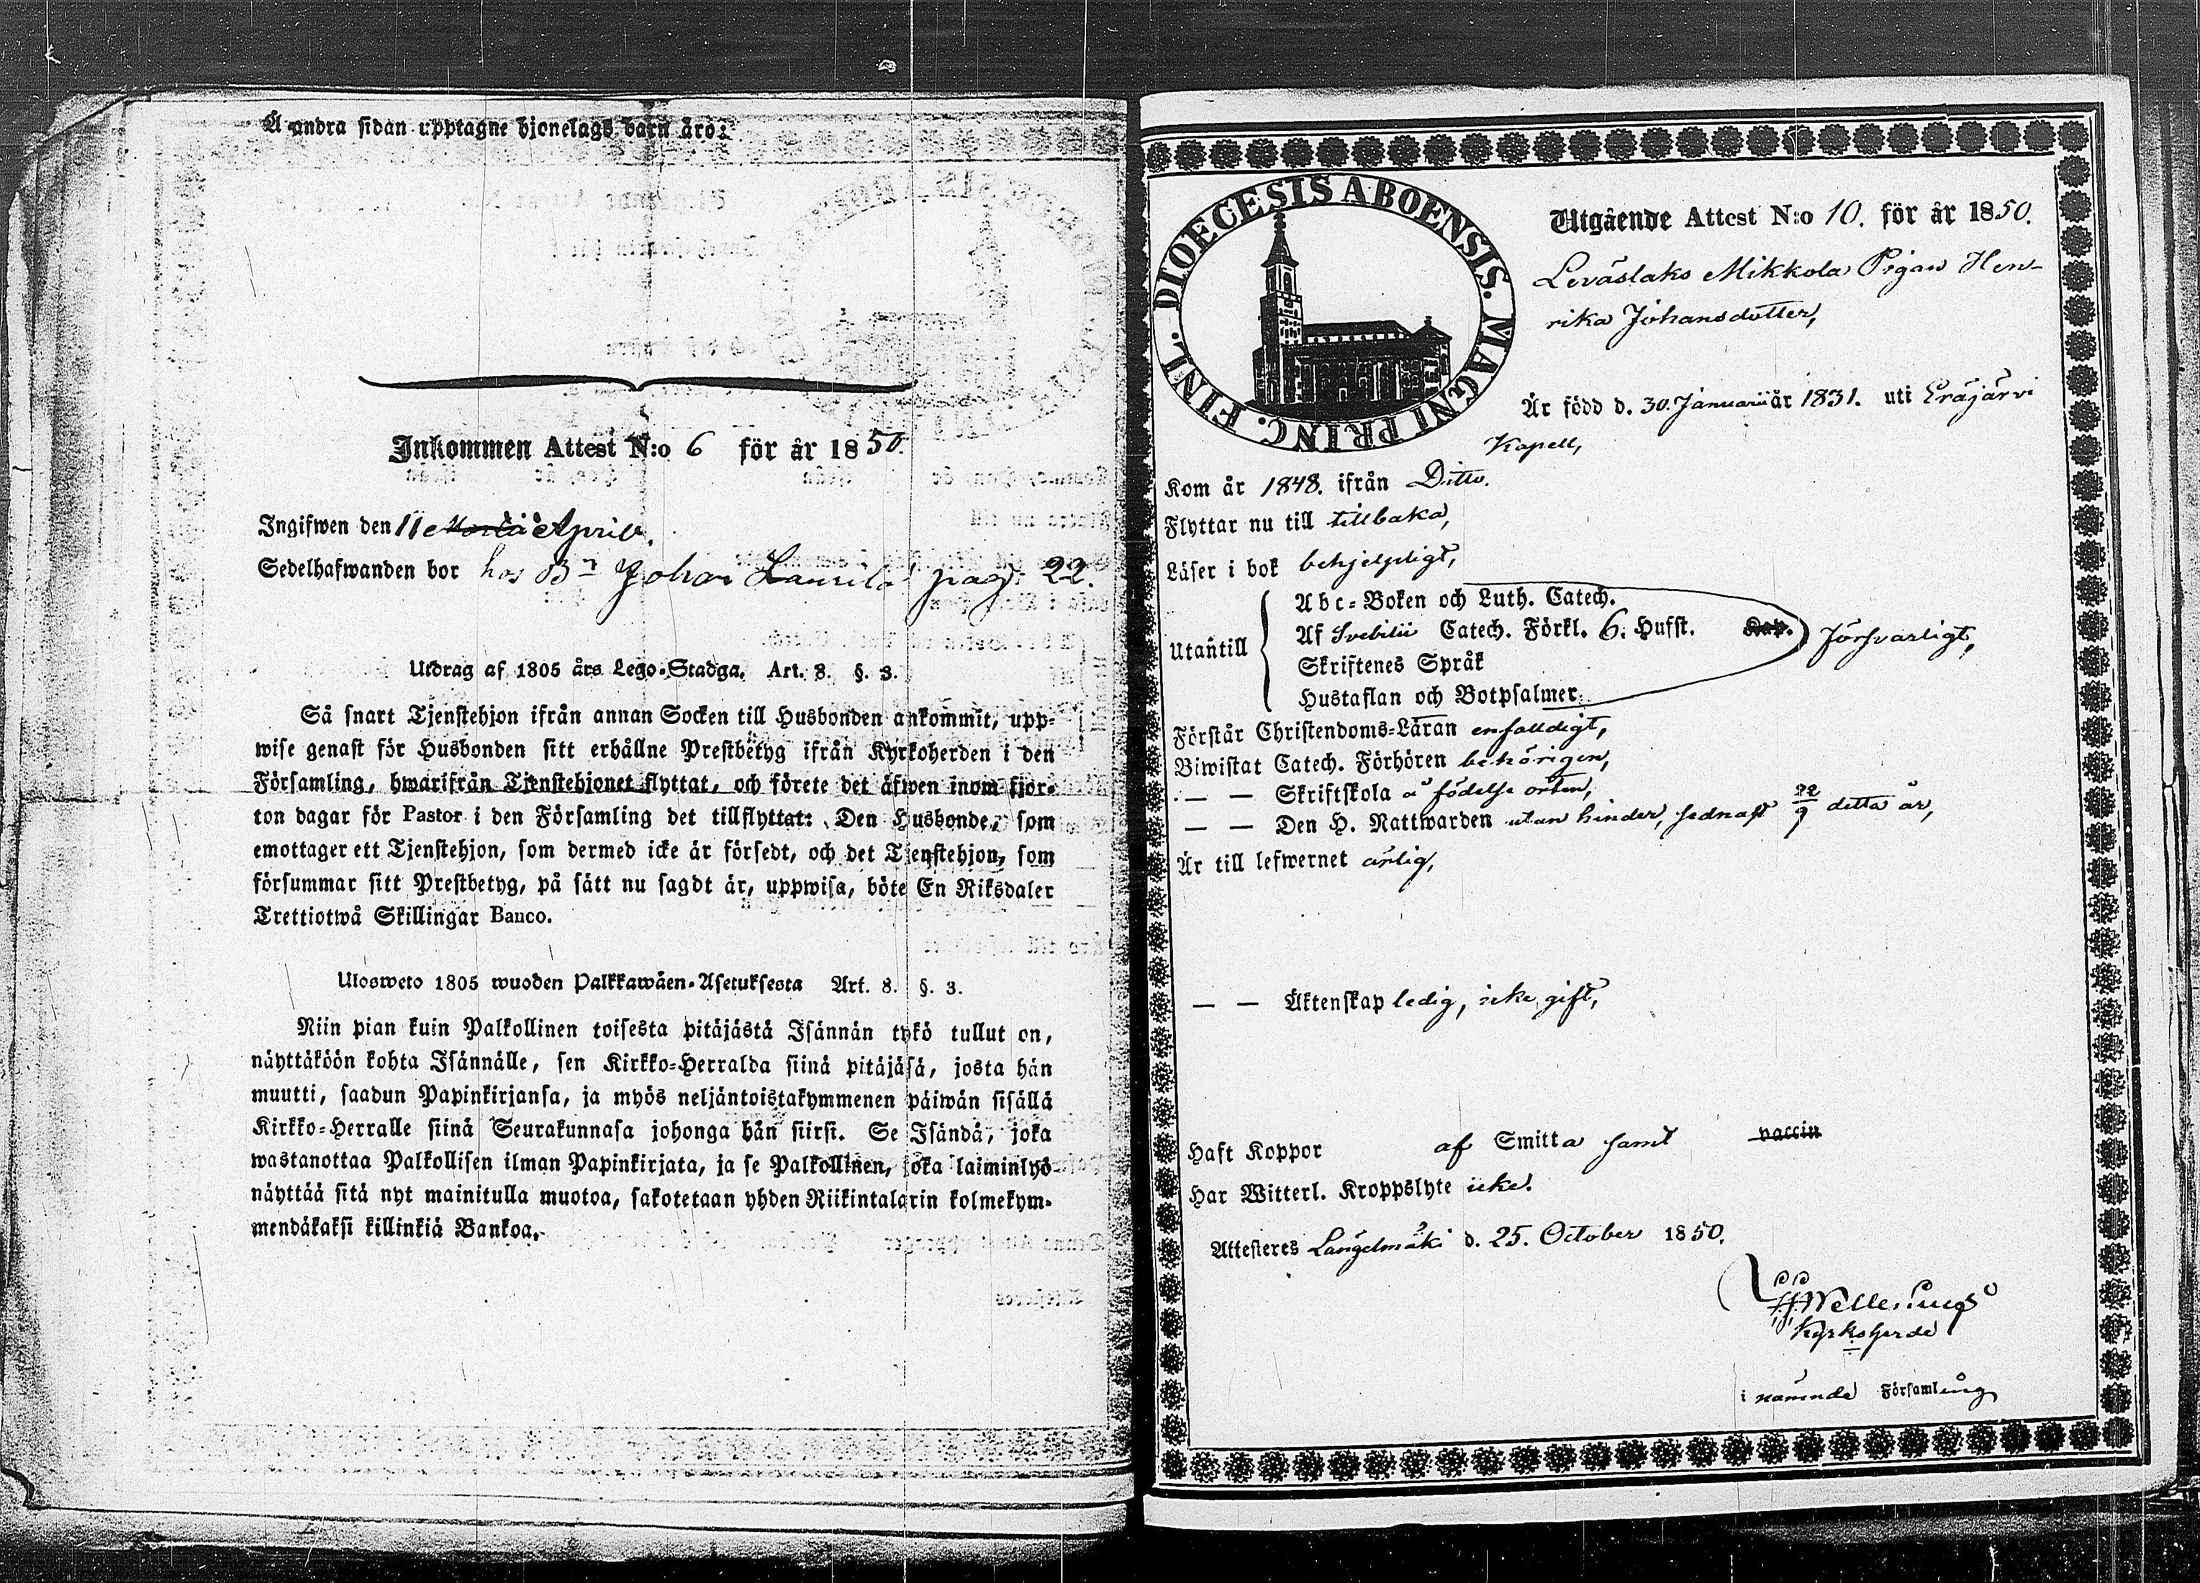 Å andra sidan upptagne hjonelags barn äro:
Inkommen Attest N:o 6 för år 1850.
Ingifwen den 11 April.
Sedelhafwanden bor hos Bn Johan Laurila pag. 22.
Utdrag af 1805 års Lego-Stadga. Art. 8. §. 3.
Så snart Tjenstehjon ifrån annan Socken till Husbonden ankommit, upp-
wise genast för Husbonden sitt erhållne Prestbetyg ifrån Kyrkoherden i den
Församling, hwarifrån Tjenstehjonet flyttat, och förete det äfwen inom fjor-
ton dagar för Pastor i den Församling det tillflyttat: Den Husbonde, som
emottager ett Tjenstehjon, som dermed icke är försedt, och det Tjenstehjon, som
försummar sitt Prestbetyg, på sätt nu sagdt är, uppwisa, böte En Riksdaler
Trettiotwå Skillingar Banco.
Ulosweto 1805 wuoden Palkkawäen-Asetuksesta Art. 8. §. 3.
Niin pian kuin Palkollinen toisesta pitäjästä Isännän tykö tullut on,
näyttäköön kohta Isännälle, sen Kirkko-Herralda siinä pitäjäsä, josta hän
muutti, saadun Papinkirjansa, ja myös neljäntoistakymmenen päiwän sisällä
Kirkko-Herralle siinä Seurakunnasa johonga hän siirsi. Se Isändä, joka
wastanottaa Palkollisen ilman Papinkirjata, ja se Palkollinen, joka laiminlyö
näyttää sitä nyt mainitulla muotoa, sakotetaan yhden Riikintalarin kolmekym-
mendäkaksi killinkiä Bankoa.
DIOECESIS ABOENSIS. MAGNI PRINC. FINL.
Utgående Attest N:o 10. för år 1850.
Leväslaks Mikkola Pigan Hen-
rika Johansdotter,
Är född d. 30. Januarii år 1831. uti Eräjärvi
Kapell,
Kom år 1848. ifrån Ditto.
Flyttar nu till tillbaka,
Läser i bok behjelpligt,
Utantill
Abc-Boken och Luth. Catech.
Af Svebilii Catech. Förkl. 6. Hufst. Kap. försvarligt,
Skriftenes Språk
Hustaflan och Botpsalmer
Förstår Christendoms-Läran enfalldigt,
Biwistat Catech. Förhören behörigen,
— — Skriftskola å födelse orten,
— — Den H. Nattwarden utan hinder, sednast 22/9 detta år,
Är till lefwernet ärlig,
— — Äktenskap ledig, icke gift,
Haft Koppor af Smitta samt vaccin
Har Witterl. Kroppslyte icke.
Attesteres Längelmäki d. 25. October 1850.
Kyrkoherde
i nämnde Församling